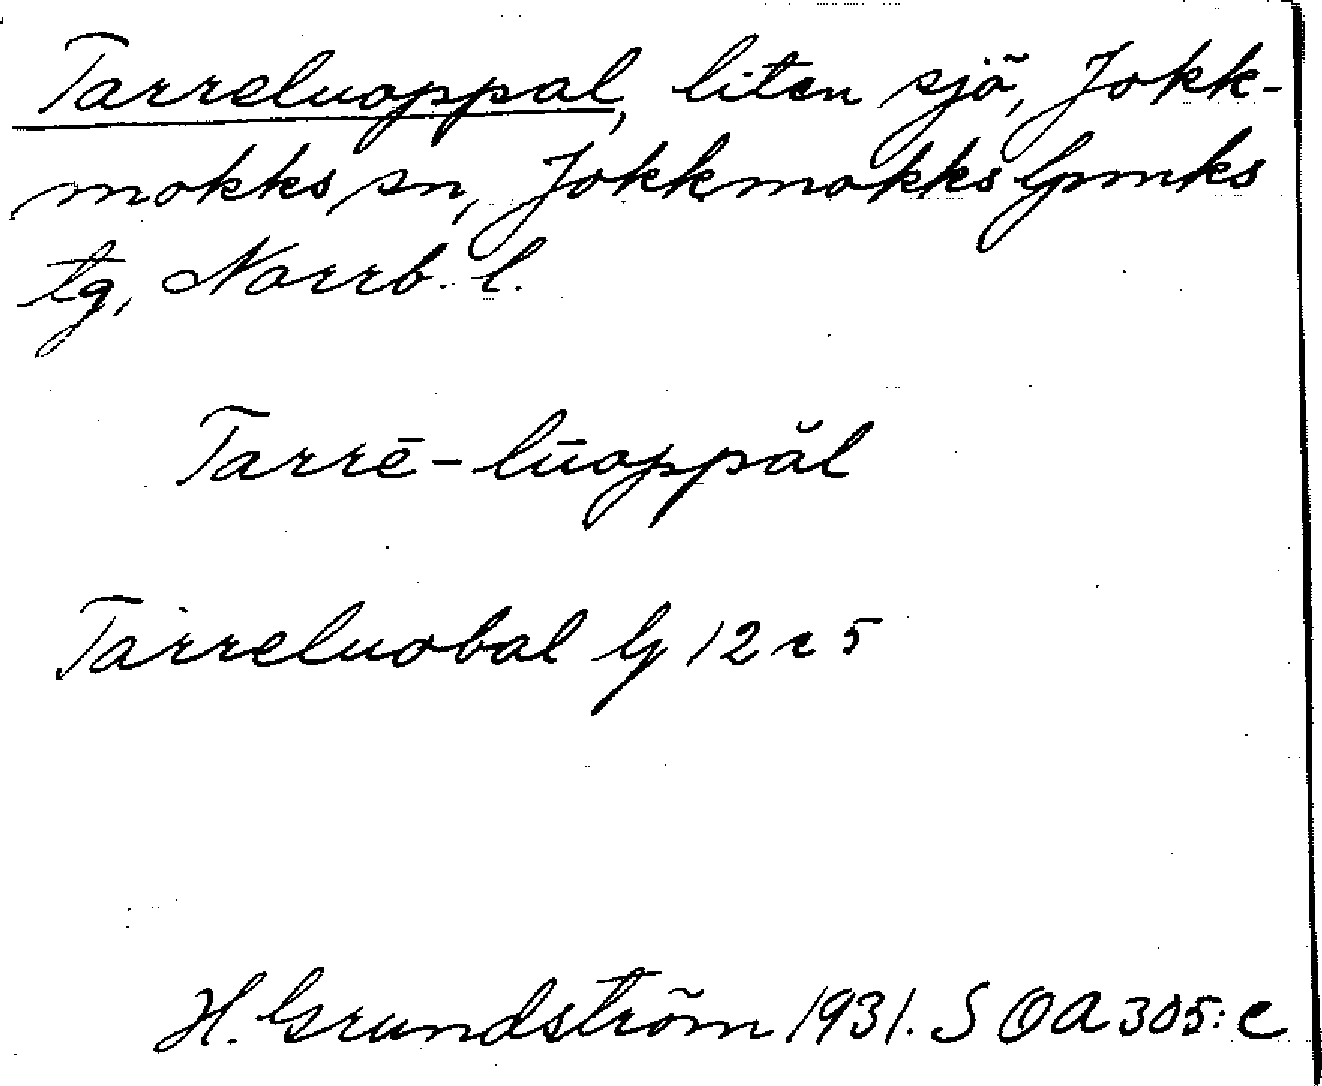 Tarreluoppal, liten sjö, Jokk-
mokks sn, Jokkmokks lpmks
tg, Norrb. l.
Tarrē-lūoppăl
Tarreluobal
H. Grundström 1931. S O A 305: c